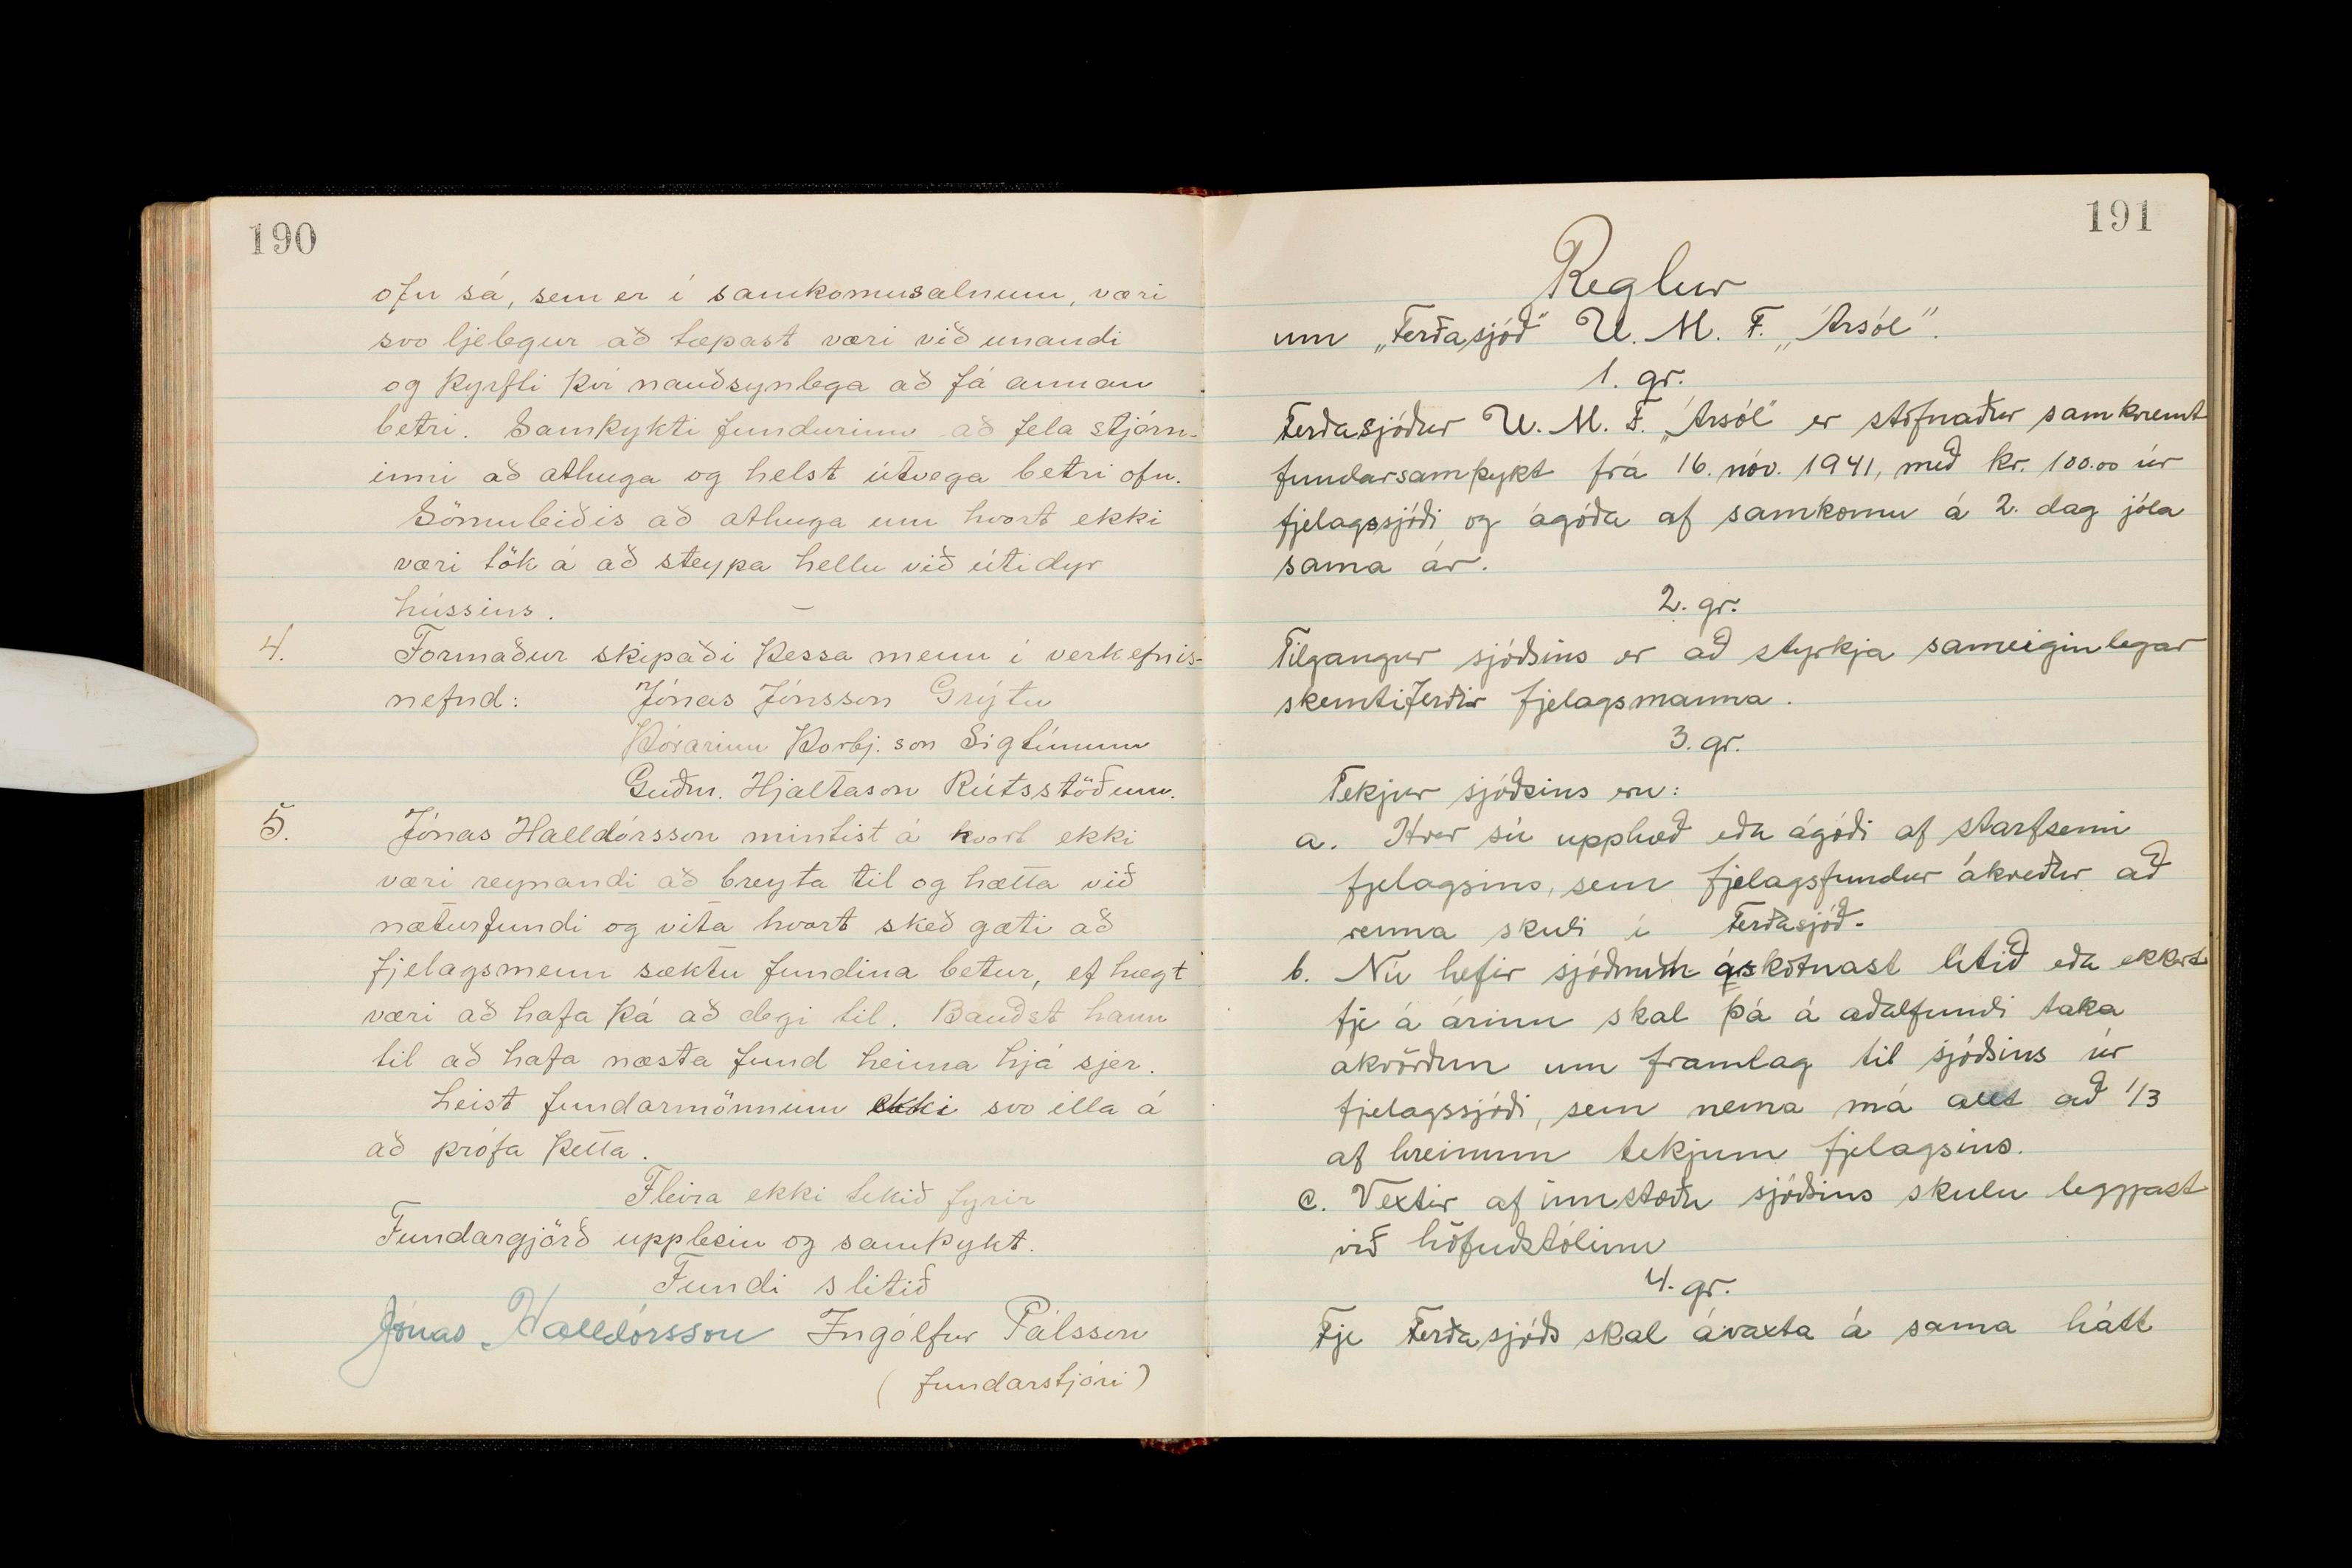 190
ofn sá, sem er í samkomusalnum, væri
svo ljelegur að tæpast væri við unandi
og þyrfti því nauðsynlega að fá annan
betri. Samþykti fundurinn að fela stjórn-
inni að athuga og helst útvega betri ofn.
Sömuleiðis að athuga um hvort ekki
væri tök á að steypa hellu við útidyr
hússins.
4. Formaður skipaði þessa menn í verkefnis-
nefnd: Jónas Jónsson Grýtu
Þórarinn Þorbj.son Sigtúnum
Guðm. Hjaltason Rútsstöðum.
5. Jónas Halldórsson mintist á hvort ekki
væri reynandi að breyta til og hætta við
næturfundi og vita hvort skeð gæti að
fjelagsmenn sæktu fundina betur, ef hægt
væri að hafa þá að degi til. Bauðst hann
til að hafa næsta fund heima hjá sjer.
Leist fundarmönnum ekki svo illa á
að prófa þetta.
Fleira ekki tekið fyrir
Fundargjörð upplesin og samþykt.
Fundi slitið
Jónas Halldórsson Ingólfur Pálsson
(fundarstjóri)
191
Reglur
um „Ferðasjóð" U. M. F. „Ársól".
1. gr.
Ferðasjóður U. M. F. „Ársól" er stofnaður samkvemt
fundarsamþykt frá 16. nóv. 1941, með kr. 100.00 úr
fjelagssjóði og ágóða af samkomu á 2. dag jóla
sama ár.
2. gr.
Tilgangur sjóðsins er að styrkja sameiginlegar
skemtiferðir fjelagsmanna.
3. gr.
Tekjur sjóðsins eru:
a. Hver sú upphæð eða ágóði af starfsemi
fjelagsins, sem fjelagsfundur ákveður að
renna skuli í Ferðasjóð.
b. Nú hefir sjóðnum áskotnast lítið eða ekkert
fje á árinu skal þá á aðalfundi taka
ákvörðun um framlag til sjóðsins úr
fjelagssjóði, sem nema má allt að 1/3
af hreinum tekjum fjelagsins.
c. Vextir af innstæðu sjóðsins skulu leggjast
við höfuðstólinn
4. gr.
Fje Ferðasjóðs skal ávaxta á sama hátt